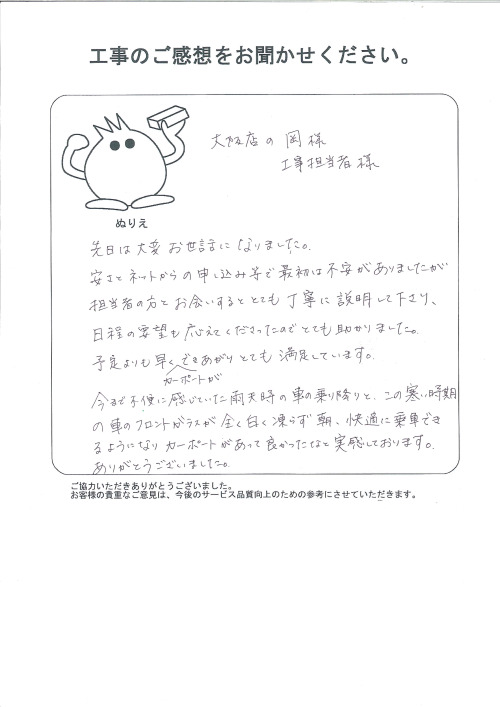 工事のご感想をお聞かせください。
大阪店の 岡様
工事担当者様
ぬりえ
先日は大変お世話になりました。
安さとネットからの申し込み等で最初は不安がありましたが
担当者の方とお会いするととても丁寧に説明して下さり、
日程の要望も応えてくださったのでとても助かりました。
予定よりも早くできあがりとても満足しています。
カーポートが
今まで不便に感じていた雨天時の車の乗り降りと、この寒い時期
の車のフロントガラスが全く白く凍らず朝、快適に乗車でき
るようになりカーポートがあって良かったなと実感しております。
ありがとうございました。
ご協力いただきありがとうございました。
お客様の貴重なご意見は、今後のサービス品質向上のための参考にさせていただきます。